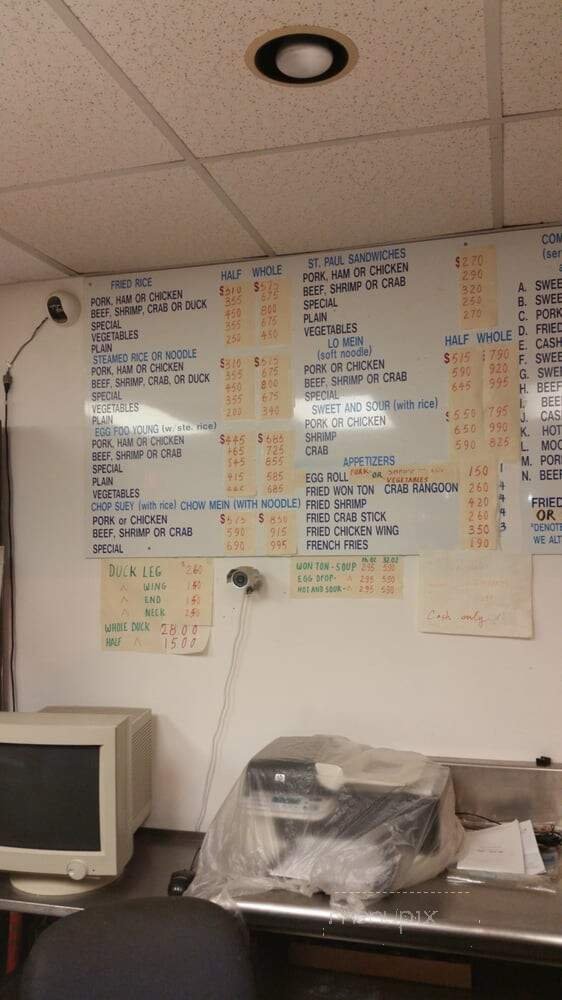 FRIED RICE HALF WHOLE
PORK, HAM OR CHICKEN $310 $575
BEEF, SHRIMP, CRAB OR DUCK 355 675
SPECIAL 450 800
VEGETABLES 355 675
PLAIN 250 450
STEAMED RICE OR NOODLE
PORK, HAM OR CHICKEN $310 $575
BEEF, SHRIMP, CRAB, OR DUCK 355 675
SPECIAL 450 800
VEGETABLES 355 675
PLAIN 200 340
EGG FOO YOUNG (w/ ste. rice)
PORK, HAM OR CHICKEN $445 $685
BEEF, SHRIMP OR CRAB 465 725
SPECIAL 545 855
PLAIN 415 585
VEGETABLES 445 685
CHOP SUEY (with rice) CHOW MEIN (WITH NOODLE)
PORK or CHICKEN $575 $850
BEEF, SHRIMP OR CRAB 590 915
SPECIAL 690 995
ST. PAUL SANDWICHES
PORK, HAM OR CHICKEN $270
BEEF, SHRIMP OR CRAB 290
SPECIAL 320
PLAIN 250
VEGETABLES 270
LO MEIN HALF WHOLE
(soft noodle)
PORK OR CHICKEN $515 $790
BEEF, SHRIMP OR CRAB 590 920
SPECIAL 645 995
SWEET AND SOUR (with rice)
PORK OR CHICKEN $550 795
SHRIMP 650 990
CRAB 590 825
APPETIZERS
EGG ROLL PORK OR VEGETABLES 150
FRIED WON TON CRAB RANGOON 260
FRIED SHRIMP 420
FRIED CRAB STICK 260
FRIED CHICKEN WING 350
FRENCH FRIES 190
COM
(ser
A. SWEE
B. SWEE
C. PORK
D. FRIED
E. CASH
F. SWEE
G. SWEE
H. BEEF
I. BEEF
J. CAS
K. HOT
L. MOO
M. POR
N. BEEF
FRIED
OR
*DENOTE
WE ALT
DUCK LEG $260
^ WING 150
^ END 150
^ NECK 250
WHOLE DUCK 28.00
HALF ^ 15.00
16 OZ 32 OZ
WON TON - SOUP 295 550
EGG DROP - ^ 295 550
HOT AND SOUR - ^ 295 550
Cash only
hp
menupix